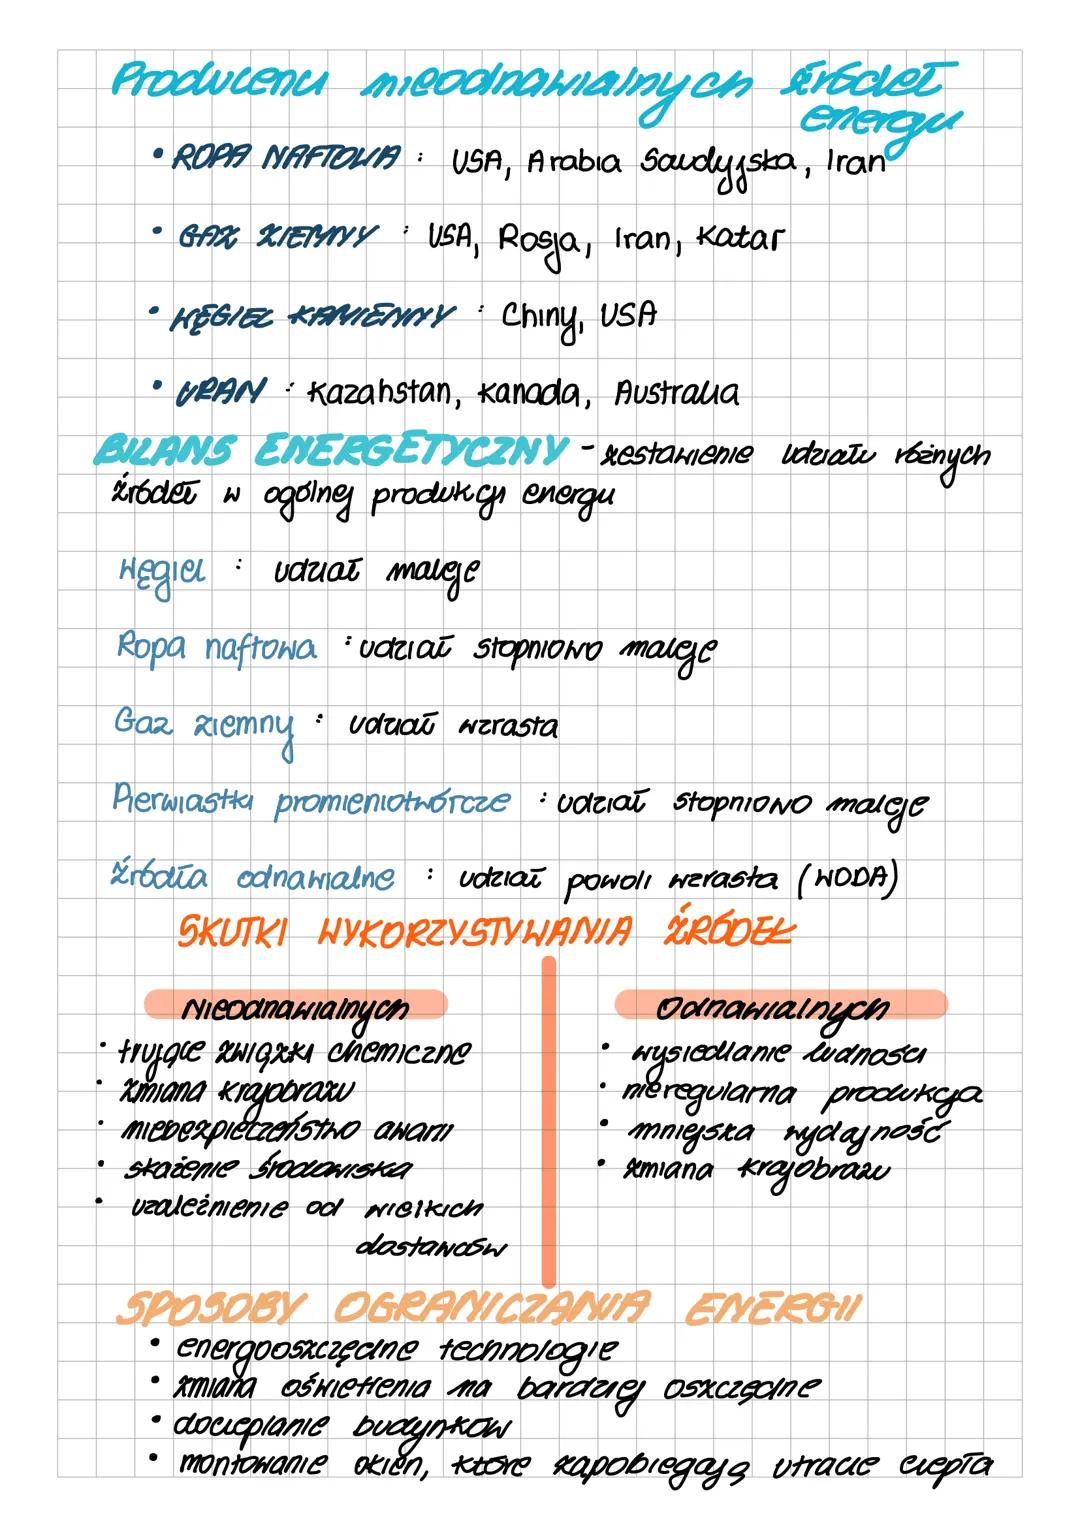 Producenci nieodnawialnych źródeł
energii
• ROPA NAFTOWA : USA, Arabia Saudyjska, Iran
• GAZ ZIEMNY : USA, Rosja, Iran, Katar
• WĘGIEL KAMIENNY : Chiny, USA
• URAN : Kazahstan, Kanada, Australia
BILANS ENERGETYCZNY - zestawienie udziału różnych
źródeł w ogólnej produkcji energii
Węgiel : udział maleje
Ropa naftowa : udział stopniowo maleje
Gaz ziemny : udział wzrasta
Pierwiastki promieniotwórcze : udział stopniowo maleje
Źródła odnawialne : udział powoli wzrasta (WODA)
SKUTKI WYKORZYSTYWANIA ŹRÓDEŁ
Nieodnawialnych
• trujące związki chemiczne
• zmiana krajobrazu
• niebezpieczeństwo awarii
• skażenie środowiska
• uzależnienie od wielkich
dostawców
Odnawialnych
• wysiedlanie ludności
• nieregularna produkcja
• mniejsza wydajność
• zmiana krajobrazu
SPOSOBY OGRANICZANIA ENERGII
• energooszczędne technologie
• zmiana oświetlenia na bardziej oszczędne
• docieplanie budynków
• montowanie okien, które zapobiegają utracie ciepła